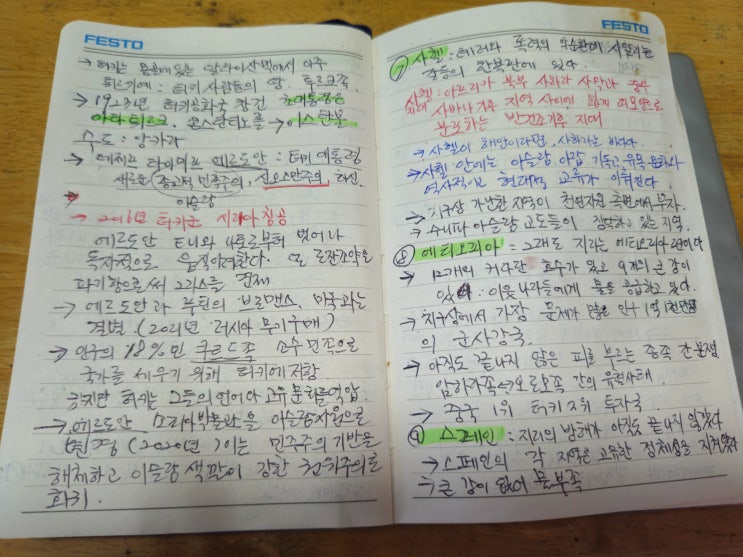 FESTO
→ 터키는 몽골에 있는 알타이산맥에서 이주
튀르키예 : 터키 사람들의 땅 투르크족
→ 1923년 터키공화국 창건 초대통령은
아타튀르크. 콘스탄티노플 → 이스탄불
수도 : 앙카라
→ 레제프 타이이프 에르도안 : 터키 대통령
새로운 종교적 민족주의, 신오스만주의,
이슬람
→ 2016년 터키군 시리아 침공
에르도안 EU와 나토로부터 벗어나
독자적으로 움직여야한다. 또 로잔조약을
파기함으로써 그리스를
→ 에르도안과 푸틴의 브로맨스, 미국과는
결별 (러시아 무기구매)
→ 인구의 18%인 쿠르드족 소수민족으로
국가를 세우기 위해 터키에 저항.
하지만 터키는 그들의 언어와 고유문화를 억압
→ 에르도안 소피아박물관을 이슬람사원으로
변경 (2020년) 이는 민주주의 기반을
해체하고 이슬람 색깔이 강한 권위주의로
회귀.
FESTO
⑦ 사헬 : 테러와 폭력의 악순환에 시달리는
갈등의 한복판에 있다.
사헬 : 아프리카 북부 사하라 사막과 중부
지대 사바나기후 지역 사이에 띠 모양으로
분포하는 반건조기후 지대
→ 사헬이 해안이라면, 사하라는 바다다.
→ 사헬 안에는 이슬람, 아랍, 기독교, 유목 문화가
역사적이고 현대적 교류가 이뤄진다.
→ 지구상 가난한 지역이 천연자원 측면에서 부자.
→ 수니파 이슬람 교도들이 장악하고 있는 지역.
⑧ 에티오피아 : 그래도 지리는 에티오피아 편이다
→ 12개의 커다란 호수가 있고 9개의 큰 강이
있다 : 이웃 나라들에게 물을 공급하고 있다.
→ 지구상에서 가장 문제가 많은 인구 1억 1천만명
의 군사강국.
→ 아직도 끝나지 않은 피를 부르는 종족 간 분쟁
암하라족 ↔ 오로모족 간의 유혈사태.
→ 중국 1위 터키 2위 투자국.
⑨ 스페인 : 지리의 방해가 아직도 끝나지 않았다
→ 스페인의 각 지역은 고유한 정체성을 지켜왔다
→ 큰 강이 없어 물부족